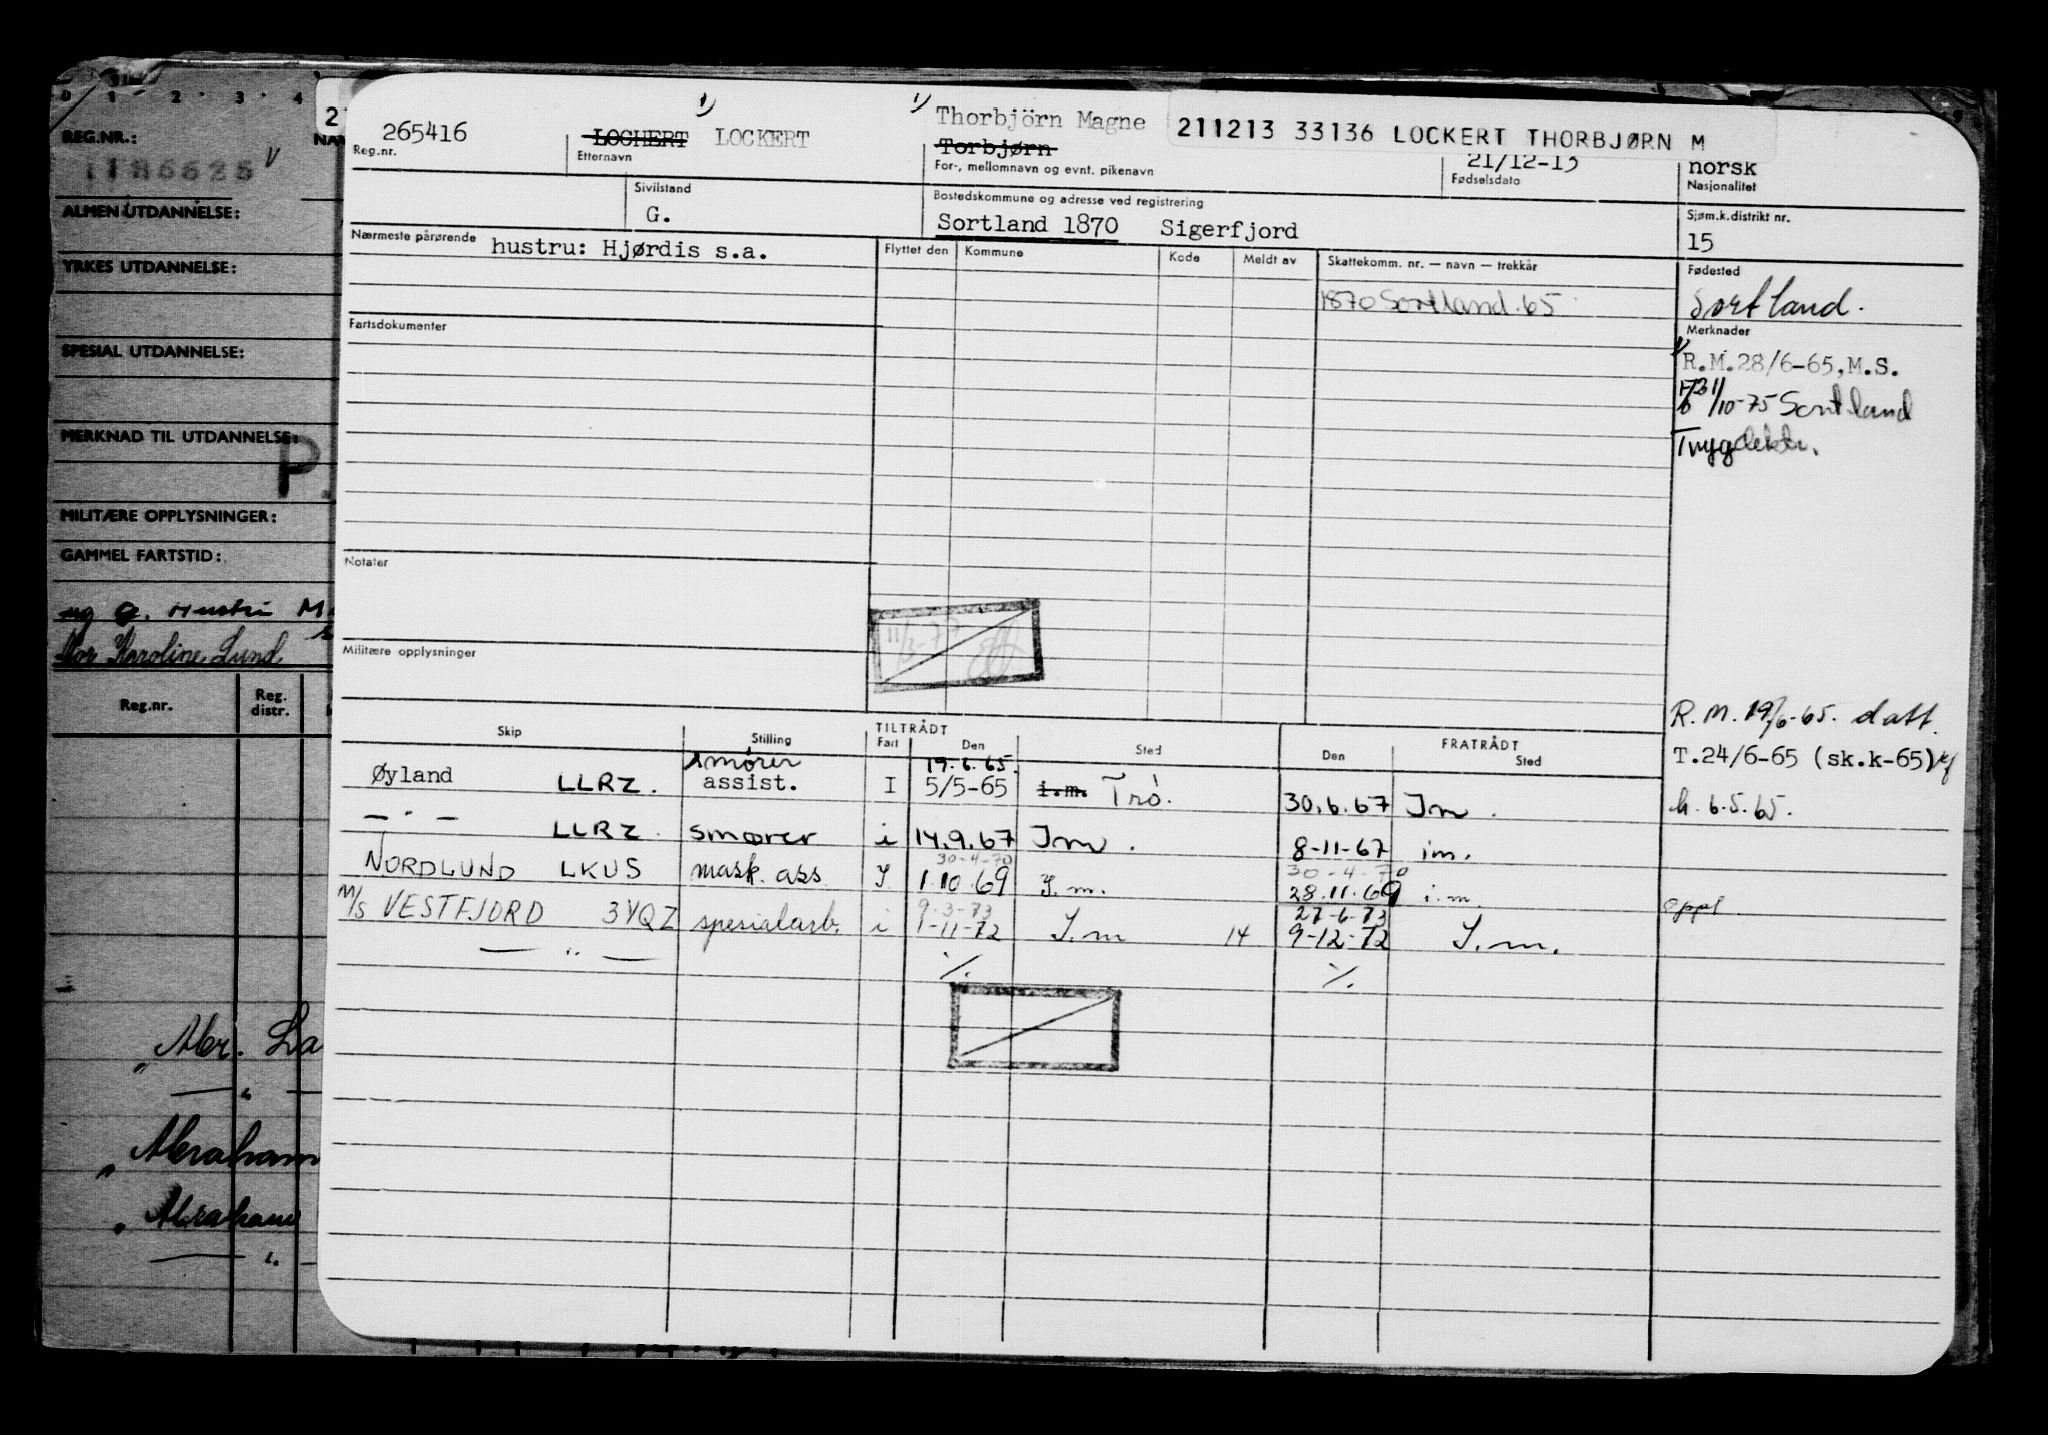 0 1 2 3 4
REG.NR.:
ALMEN UTDANNELSE:
YRKES UTDANNELSE:
SPESIAL UTDANNELSE:
MERKNAD TIL UTDANNELSE:
P.
MILITÆRE OPPLYSNINGER:
GAMMEL FARTSTID:
Mor Karoline Lund
Reg.nr. Reg. distr.
265416 LOCHERT LOCKERT
Reg.nr. Etternavn
1) 1) Thorbjörn Magne
Torbjørn
For-, mellomnavn og evnt. pikenavn
211213 33136 LOCKERT THORBJØRN M
21/12-13
Fødselsdato
norsk
Nasjonalitet
Sivilstand
G.
Bostedskommune og adresse ved registrering
Sortland 1870 Sigerfjord
Sjøm.k.distrikt nr.
15
Nærmeste pårørende hustru: Hjørdis s.a.
Flyttet den Kommune Kode Meldt av Skattekomm. nr. — navn — trekkår
1870 Sortland 65
Fødested
Sortland.
Merknader
1) R.M.28/6-65,M.S.
1/10-75 Sortland
Trygdektr.
Fartsdokumenter
Notater
11/3-77
Militære opplysninger
R.M. 19/6-65. datt.
T.24/6-65 (sk.k-65)
h. 6.5.65.
Skip Stilling TILTRÅDT FRATRÅDT
Fart Den Sted Den Sted
smører 19.6.65.
Øyland LLRZ. assist. I 5/5-65 i.m. Trò. 30.6.67 Im.
— " — LLRZ. smører i 14.9.67 Im. 8-11-67 im.
30-4-70 30-4-70
NORDLUND LKUS mask. ass. I 1.10.69 I.m. 28.11.69 i.m.
9-3-73 27-6-73
M/S VESTFJORD 3YQZ spesialarb. i 1-11-72 I.m 14 9-12-72 I.m.
oppl.
— " — ./. ./.
Abr. La
— " —
Abraham
Abraham
— " —